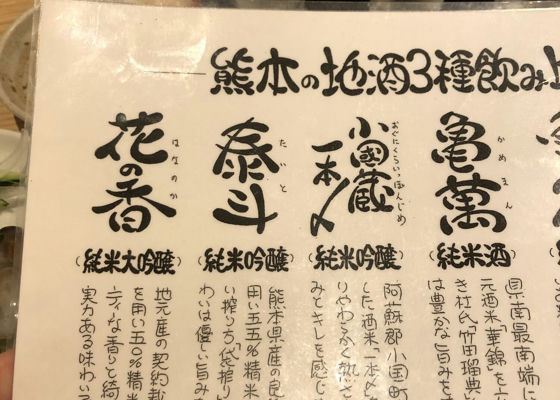 熊本の地酒3種飲み
かめまん
亀萬
(純米酒)
県南最南端に
元酒米「華錦」を
き杜氏「竹田瑠典
は豊かな旨みを
おぐにくらいっぽんじめ
小國蔵
一本〆
(純米吟醸)
阿蘇郡小国町
した酒米一本〆
りやわらかく
みとキレを感じ
たいと
泰斗
(純米吟醸)
熊本県産の良
用い五五%精米
い搾り方「袋搾り
わいは優しい旨み
はなのか
花の香
(純米大吟醸)
地元産の契約栽
を用い五〇%精米
ティな香りと綺
実力ある味わい